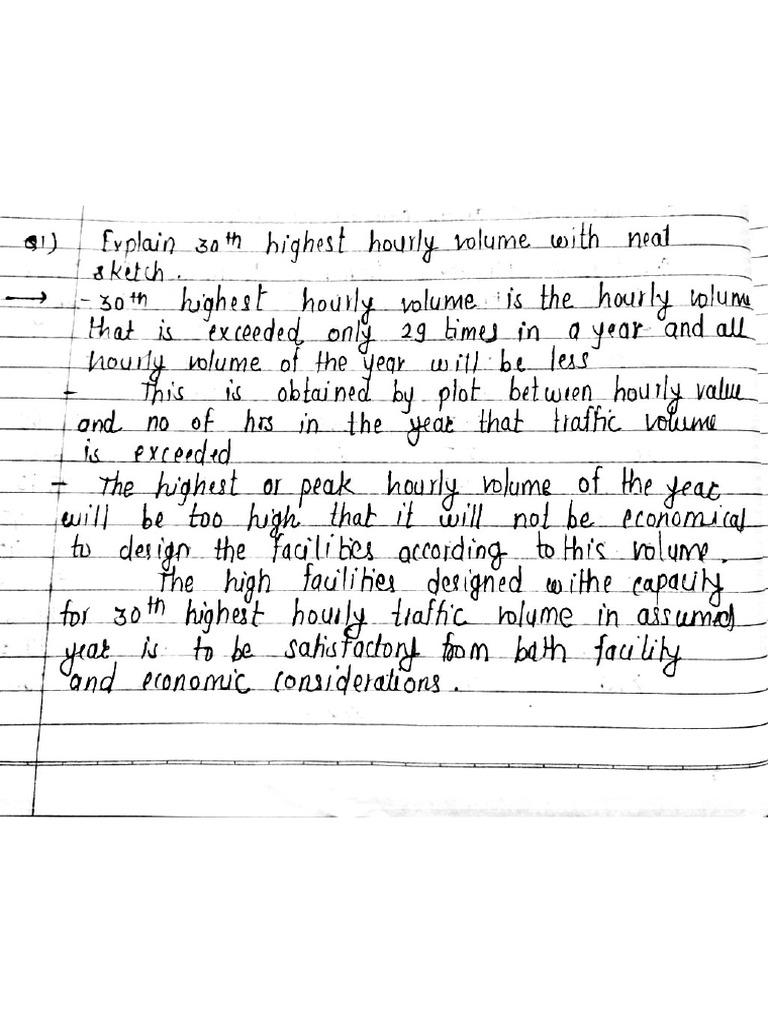 Q1) Explain 30th highest hourly volume with neat
sketch.
→ - 30th highest hourly volume is the hourly volume
that is exceeded only 29 times in a year and all
hourly volume of the year will be less
- This is obtained by plot between hourly value
and no of hrs in the year that traffic volume
is exceeded
- The highest or peak hourly volume of the year
will be too high that it will not be economical
to design the facilities according to this volume.
The high facilities designed withe capacity
for 30th highest hourly traffic volume in assumed
year is to be satisfactory from bath facility
and economic considerations.